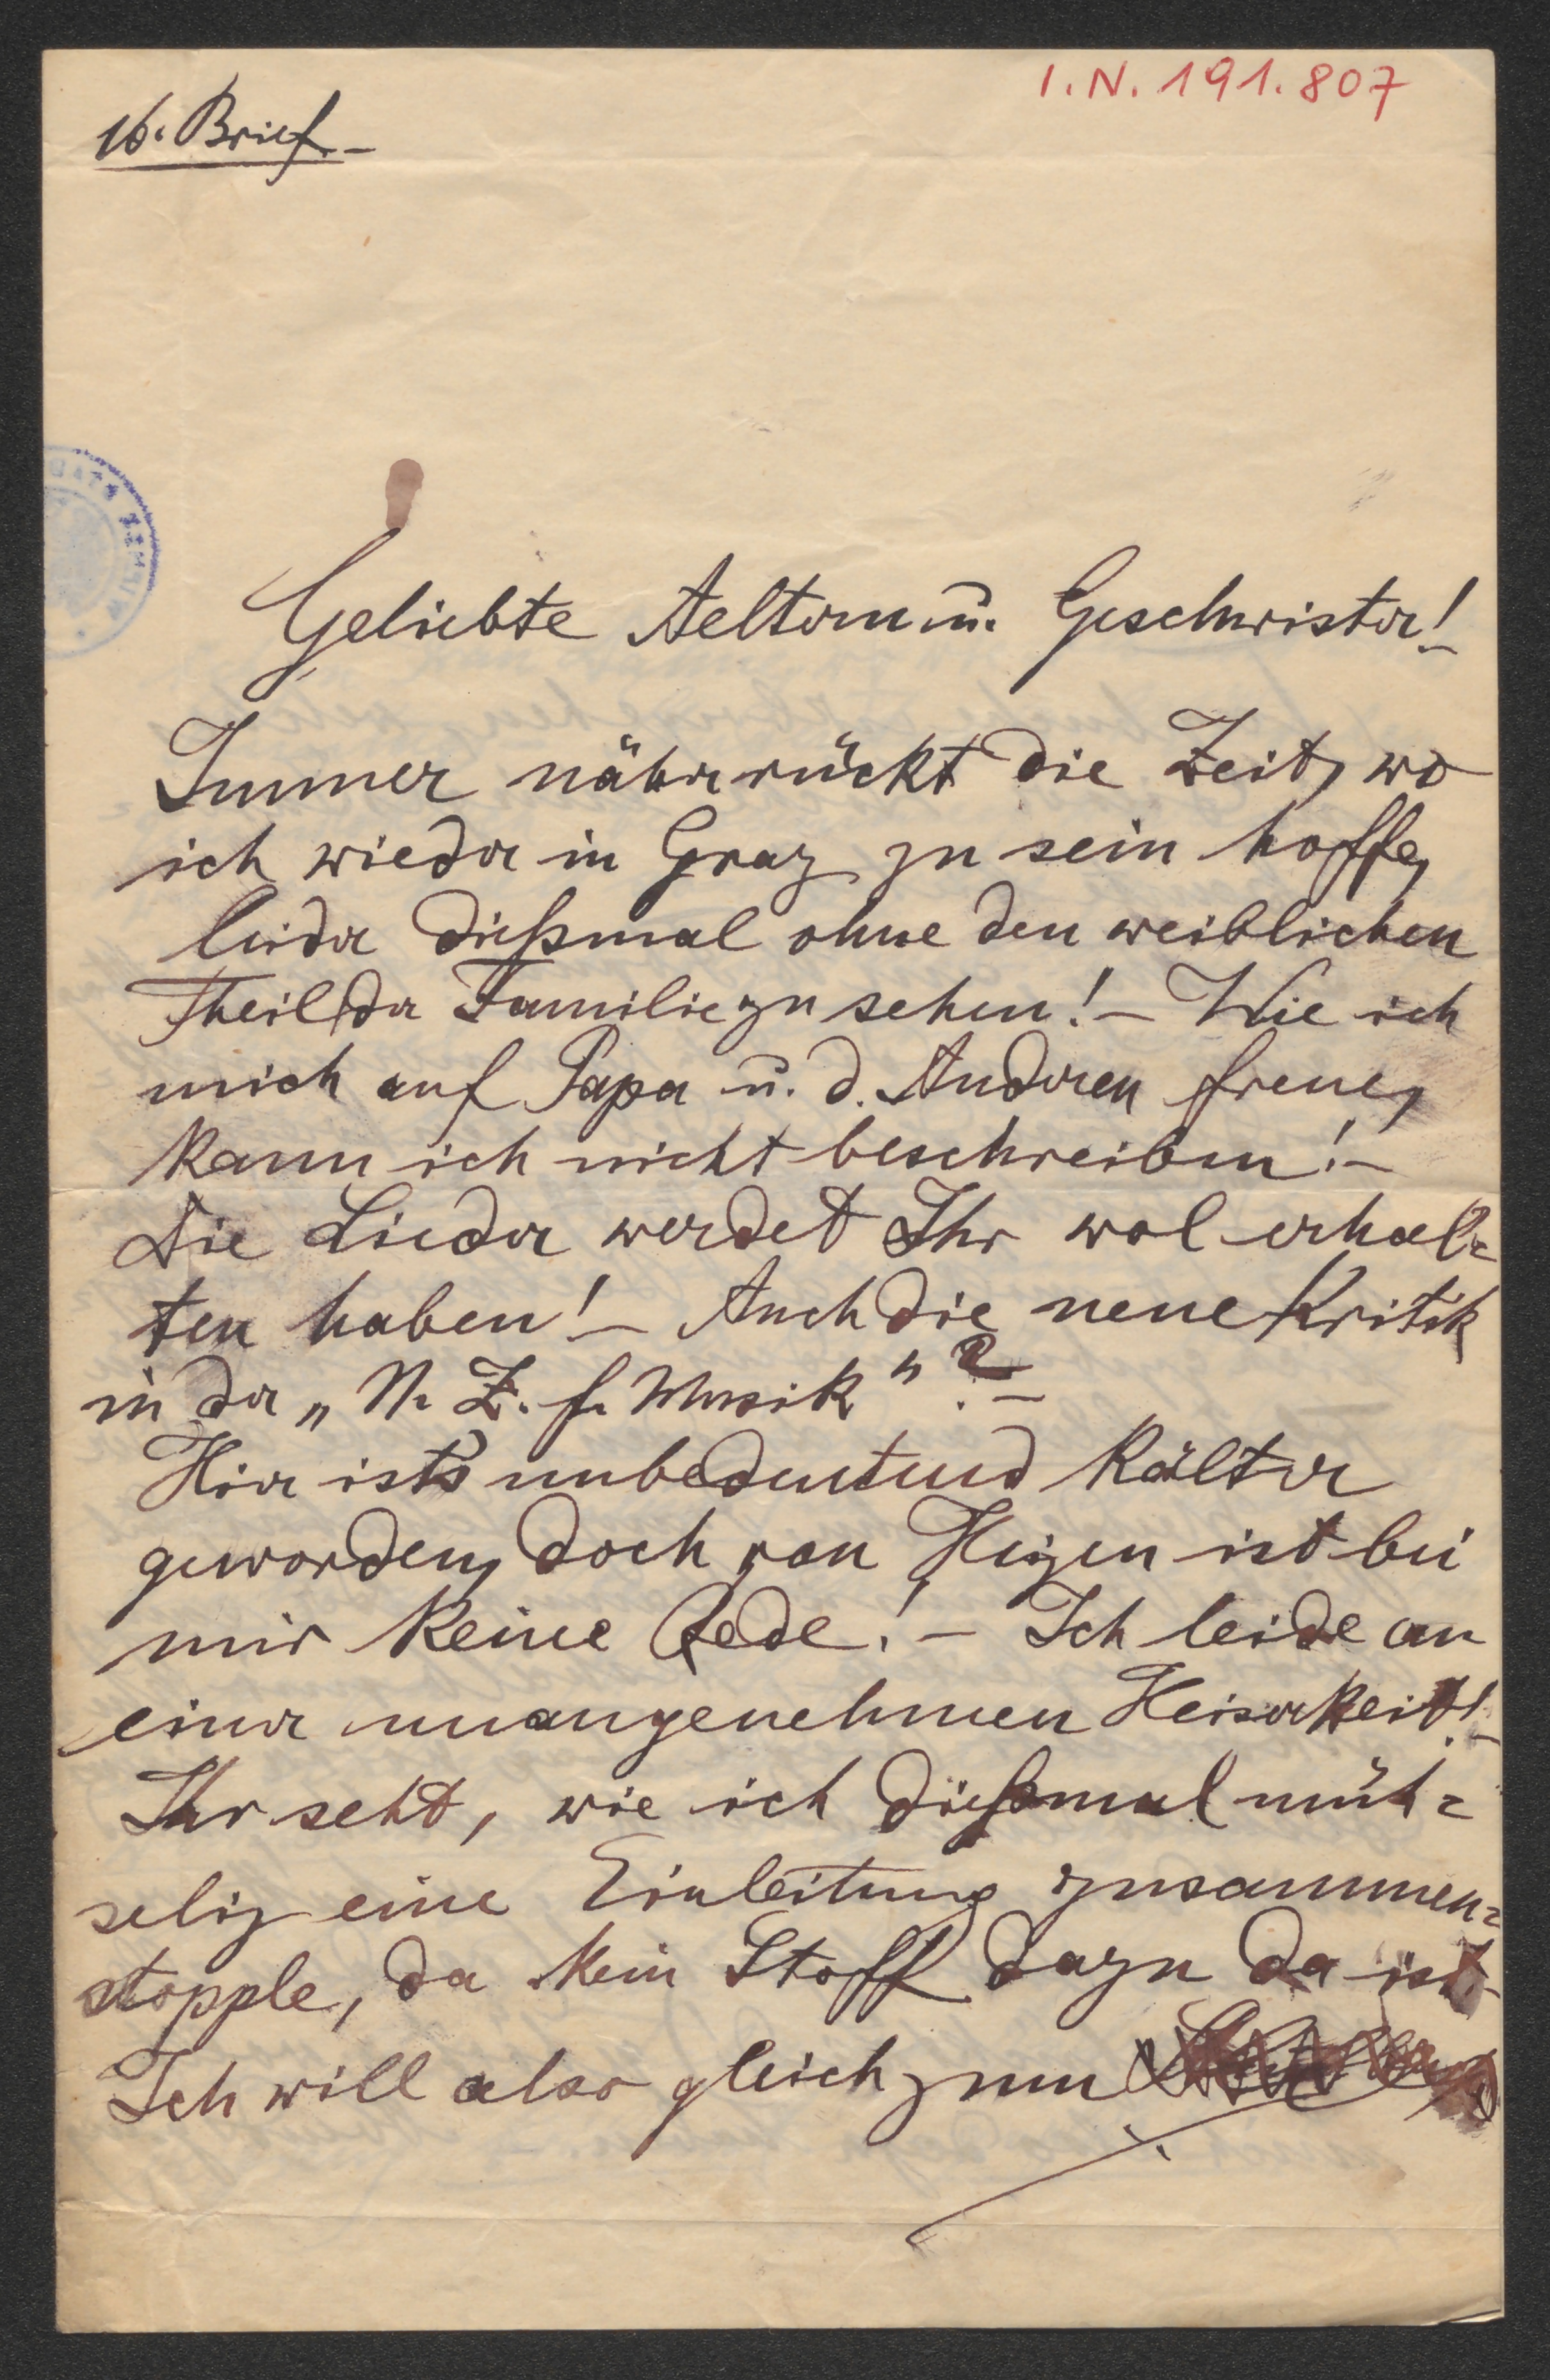 I.N. 191.807
16. Brief.-
Geliebte Aeltern u. Geschwister!-
Immer näher rückt die Zeit, wo
ich wieder in Graz zu sein hoffe,
leider dießmal ohne den weiblichen
Theil der Familie zu sehen! - Wie ich
mich auf Papa u. d. Anderen freue,
kann ich nicht beschreiben! -
Die Lieder werdet Ihr wol erhal=
ten haben! - Auch die neue Kritik
in der „N. Z. f. Musik"? -
Hier ist's unbedeutend kälter
geworden, doch von Heizen ist bei
mir keine Rede! - Ich leide an
einer unangenehmen Heiserkeit! -
Ihr seht, wie ich dießmal müh=
selig eine Einleitung zusammen=
stopple, da kein Stoff dazu da ist.-
Ich will also gleich zum